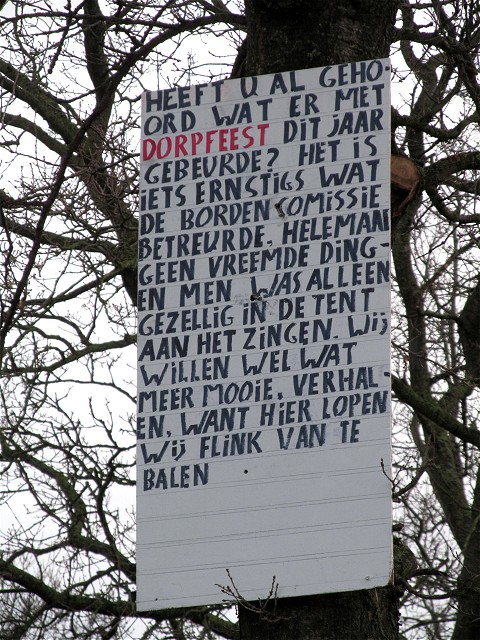 HEEFT U AL GEHO-
ORD WAT ER MET
DORPFEEST DIT JAAR
GEBEURDE? HET IS
IETS ERNSTIGS WAT
DE BORDENCOMISSIE
BETREURDE. HELEMAAN
GEEN VREEMDE DING-
EN MEN WAS ALLEEN
GEZELLIG IN DE TENT
AAN HET ZINGEN. WIJ
WILLEN WEL WAT
MEER MOOIE. VERHAL-
EN, WANT HIER LOPEN
WIJ FLINK VAN TE
BALEN